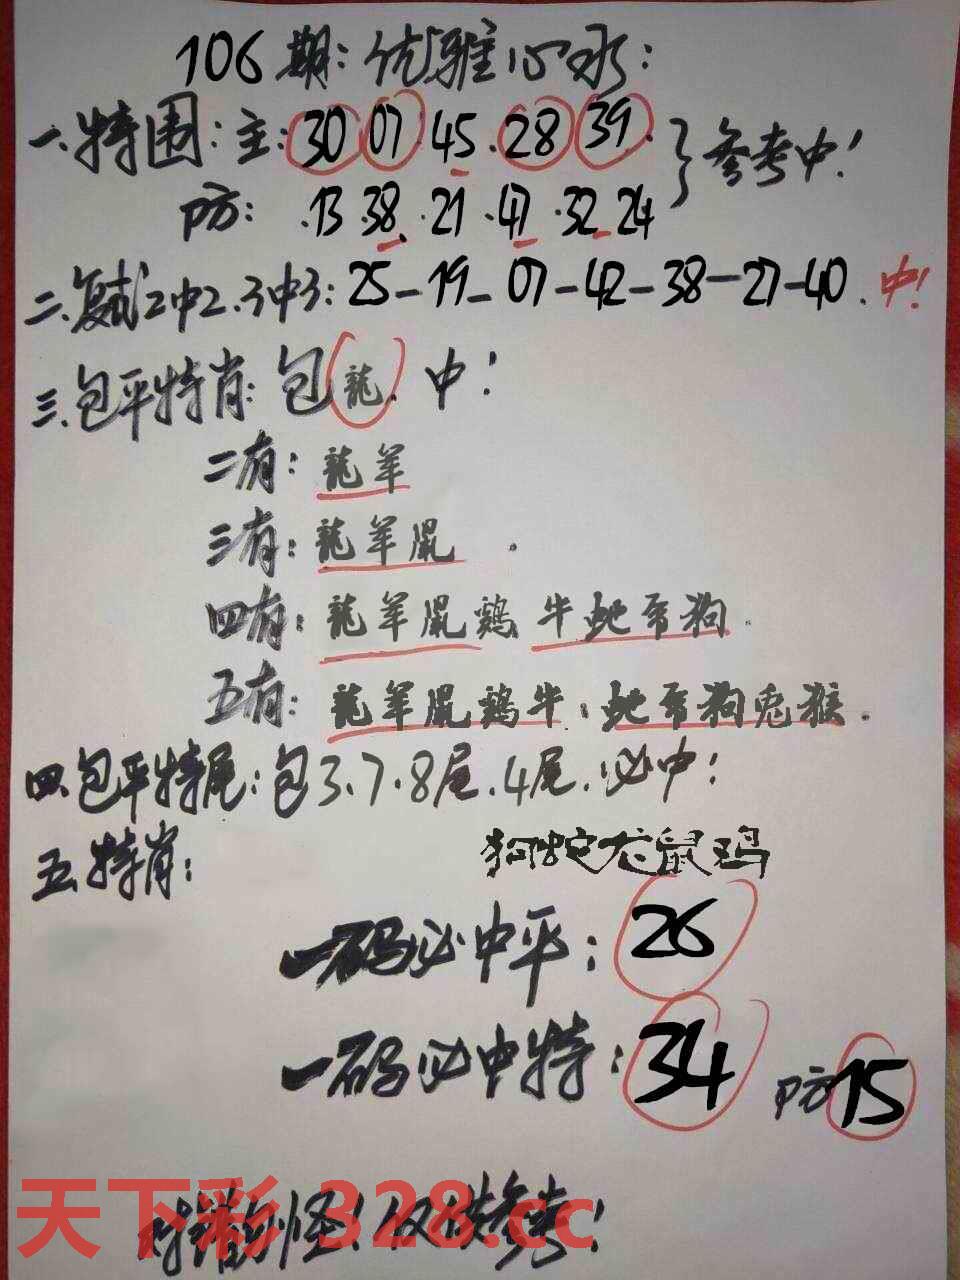 106期:优雅心水:
一.特围:主:30 07 45.28 39. }参考中!
防: .13 38. .21 .47 .32 24
二.复式2中2.3中3: 25-19-07-42-38-27-40.中!
三.包平特肖:包龍.中!
二有:龍羊
三有:龍羊鼠.
四有:龍羊鼠鷄 牛蛇马狗.
五有:龍羊鼠鷄牛.蛇马狗兔猴.
四.包平特尾:包3.7.8尾.4尾.必中!
五特肖: 狗蛇龙鼠鸡
一码必中平: 26
一码必中特: 34 防15
错勿怪!仅供参考!
天下彩.328.cc